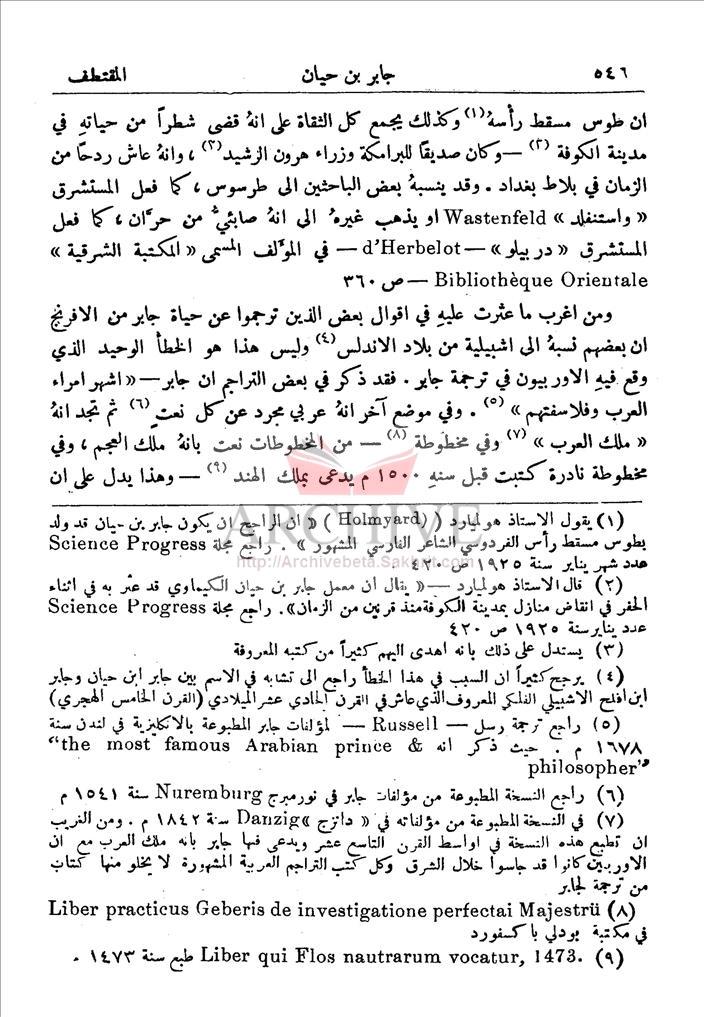 ٥٤٦ جابر بن حيان المقتطف
ان طوس مسقط رأسهُ (١) وكذلك يجمع كل الثقاة على انهُ قضى شطراً من حياتهِ في
مدينة الكوفة (٢) — وكان صديقاً للبرامكة وزراء هرون الرشيد (٣) ، وانهُ عاش ردحاً من
الزمان في بلاط بغداد . وقد ينسبهُ بعض الباحثين الى طرسوس ، كما فعل المستشرق
« واستنفلد » Wastenfeld او يذهب غيرهُ الى انهُ صابئيٌّ من حرَّان ، كما فعل
المستشرق « در بيلو » — d'Herbelot — في المؤلف المسمى « المكتبة الشرقية »
Bibliothèque Orientale — ص ٣٦٠
ومن اغرب ما عثرت عليهِ في اقوال بعض الذين ترجموا عن حياة جابر من الافرنج
ان بعضهم نسبهُ الى اشبيلية من بلاد الاندلس (٤) وليس هذا هو الخطأ الوحيد الذي
وقع فيهِ الاوربيون في ترجمة جابر . فقد ذكر في بعض التراجم ان جابر — « اشهر امراء
العرب وفلاسفتهم » (٥) . وفي موضع آخر انهُ عربي مجرد عن كل نعت (٦) ثم تجد انهُ
« ملك العرب » (٧) وفي مخطوطة (٨) — من المخطوطات نعت بانهُ ملك العجم ، وفي
مخطوطة نادرة كتبت قبل سنهِ ١٥٠٠ م يدعى بملك الهند (٩) — وهذا يدل على ان
(١) يقول الاستاذ هولميارد ((Holmyard) « ان الراجح ان يكون جابر بن حيان قد ولد
بطوس مسقط رأس الفردوسي الشاعر الفارسي المشهور » . راجع مجلة Science Progress
عدد شهر يناير سنة ١٩٢٥ ص ٤٢٠
(٢) قال الاستاذ هولميارد — « يقال ان معمل جابر بن حيان الكيماوي قد عثر به في اثناء
الحفر في انقاض منازل بمدينة الكوفة منذ قرنين من الزمان» . راجع مجلة Science Progress
عدد يناير سنة ١٩٢٥ ص ٤٢٠
(٣) يستدل على ذلك بانه اهدى اليهم كثيراً من كتبه المعروفة
(٤) يرجح كثيراً ان السبب في هذا الخطأ راجع الى تشابه في الاسم بين جابر ابن حيان وجابر
ابن افلح الاشبيلي الفلكي المعروف الذي عاش في القرن الحادي عشر الميلادي (القرن الخامس الهجري)
(٥) راجع ترجمة رسل — Russell — لمؤلفات جابر المطبوعة بالانكليزية في لندن سنة
١٦٧٨ م . حيث ذكر انه "the most famous Arabian prince &
philosopher"
(٦) راجع النسخة المطبوعة من مؤلفات جابر في نورمبرج Nuremburg سنة ١٥٤١ م
(٧) في النسخة المطبوعة من مؤلفاته في « دانزج » Danzig سنة ١٨٤٢ م . ومن الغريب
ان تطبع هذه النسخة في اواسط القرن التاسع عشر ويدعى فيها جابر بانه ملك العرب مع ان
الاوربيين كانوا قد جاسوا خلال الشرق وكل كتب التراجم العربية المشهورة لا يخلو منها كتاب
من ترجمة لجابر
(٨) Liber practicus Geberis de investigatione perfectai Majestrü
في مكتبة بودلي باكسفورد
(٩) Liber qui Flos nautrarum vocatur, 1473. طبع سنة ١٤٧٣ .
ARCHIVE
http://Archivebeta.Sakhrit.com